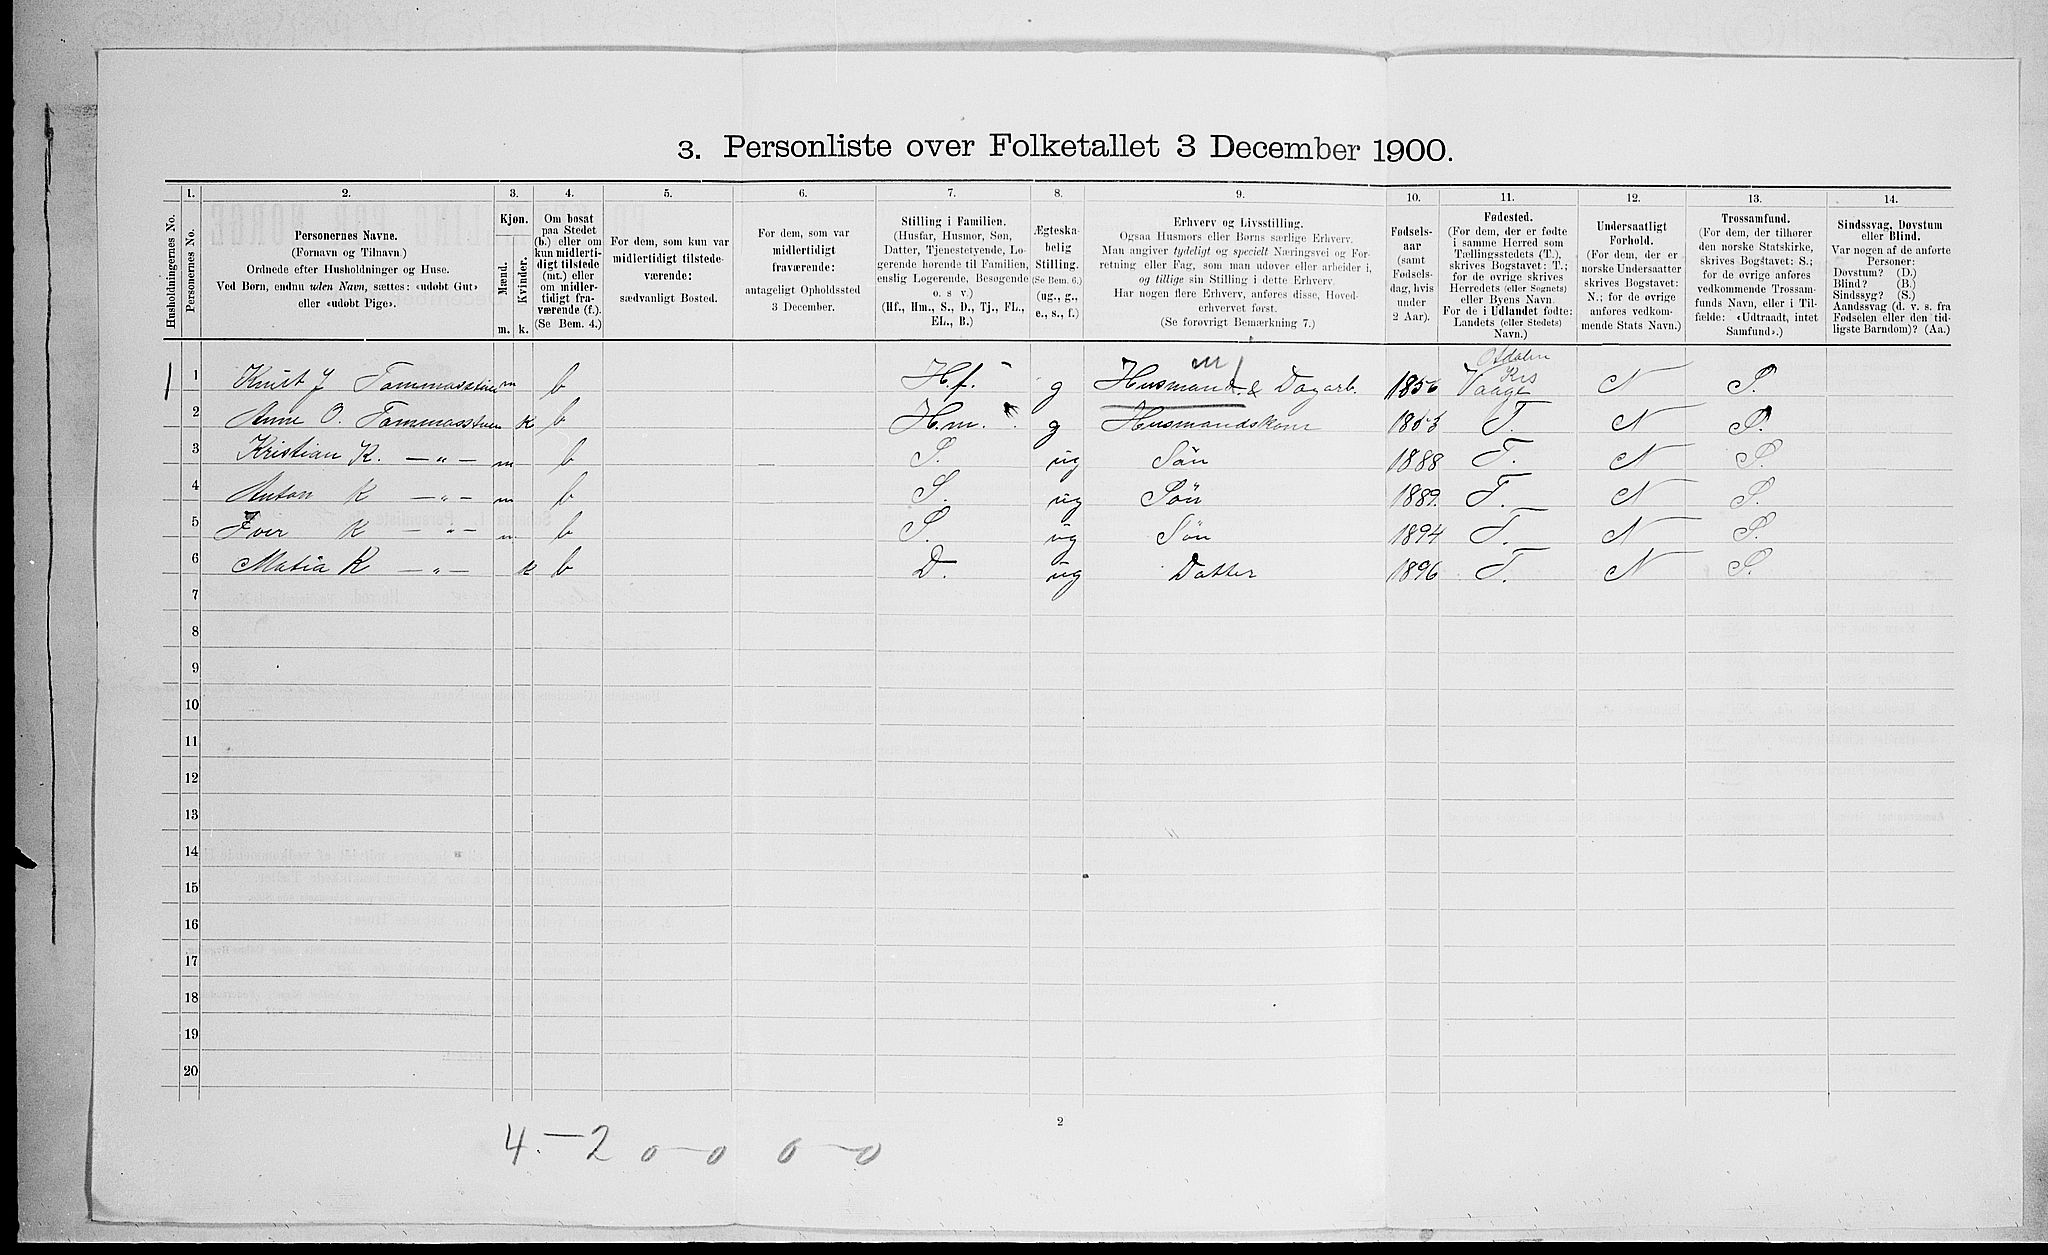 3. Personliste over Folketallet 3 December 1900.
1. 2. 3. 4. 5. 6. 7. 8. 9. 10. 11. 12. 13. 14.
Husholdningernes No.
Personernes No.
Personernes Navne.
(Fornavn og Tilnavn)
Ordnede efter Husholdninger og Huse.
Ved Børn, endnu uden Navn, sættes: «udøbt Gut»
eller «udøbt Pige».
Kjøn.
Mænd.
Kvinder.
m. k.
Om bosat
paa Stedet
(b.) eller om
kun midlerti-
digt tilstede
(mt.) eller
om midler-
tidigt fra-
værende (f.).
(Se Bem. 4.)
For dem, som kun var
midlertidigt tilstede-
værende:
sædvanligt Bosted.
For dem, som var
midlertidigt
fraværende:
antageligt Opholdssted
3 December.
Stilling i Familien.
(Husfar, Husmor, Søn,
Datter, Tjenestetyende, Lo-
gerende hørende til Familien,
enslig Logerende, Besøgende
o. s. v.)
(Hf., Hm., S., D., Tj., FL.,
EL., B.)
Ægteska-
belig
Stilling.
(Se Bem. 6.)
(ug., g.,
e., s., f.)
Erhverv og Livsstilling.
Ogsaa Husmors eller Børns særlige Erhverv.
Man angiver tydeligt og specielt Næringsvei og For-
retning eller Fag, som man udøver eller arbeider i,
og tillige sin Stilling i dette Erhverv.
Har nogen flere Erhverv, anføres disse, Hoved-
erhvervet først.
(Se forøvrigt Bemærkning 7.)
Fødsels-
aar
(samt
Fødsels-
dag, hvis
under
2 Aar).
Fødested.
(For dem, der er fødte
i samme Herred som
Tællingsstedets (T.),
skrives Bogstavet: T.;
for de øvrige skrives
Herredets (eller Sognets)
eller Byens Navn.
For de i Udlandet fødte:
Landets (eller Stedets)
Navn.)
Undersaatligt
Forhold.
(For dem, der er
norske Undersaatter
skrives Bogstavet:
N.; for de øvrige
anføres vedkom-
mende Stats Navn.)
Trossamfund.
(For dem, der tilhører
den norske Statskirke,
skrives Bogstavet: S.;
for de øvrige anføres
vedkommende Trossam-
funds Navn, eller i Til-
fælde: «Udtraadt, intet
Samfund».)
Sindssvag, Døvstum
eller Blind.
Var nogen af de anførte
Personer:
Døvstum? (D.)
Blind? (B.)
Sindssyg? (S.)
Aandssvag (d. v. s. fra
Fødselen eller den tid-
ligste Barndom)? (Aa.)
1 1 Knut J Tommasstuen m b H.f. g Husmand. & Dagarb. 1856 Vaage N S.
2 Anne O. Tommasstuen k b H.m. g Husmandskone 1853 T. N S.
3 Kristian K. —„— m b S. ug Søn 1888 T. N S.
4 Anton K —„— m b S. ug Søn 1889. T. N S.
5 Iver K —„— m b S. ug Søn 1894 T. N S.
6 Matia K —„— k b D. ug Datter 1896 T. N S.
7
8
9
10
11
12
13
14
15
16
17
18
19
20
2
4.–2 0–0 0–0